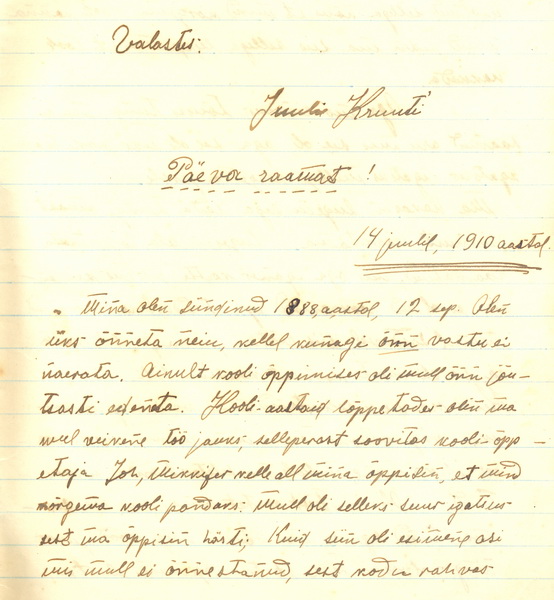 Valastes.
Juulie Kruuti
Päeva raamat!
14 juulil, 1910 aastal.
„Mina olen sündinud 1888 aastal, 12 sep. Olen
üks õnneta neiu, kellel kunagi õnn vastu ei
naerata. Ainult kooli õppimises oli mull õnn jõu-
tsasti edeneta. Kooli-aastaid lõppetades olin ma
weel veikene töö jauks, sellepärast soovitas kooli-õpp-
etaja Joh, Mikkifer kelle all mina õppisin, et mind
kõrgema kooli pandaks. Mull oli selleks suur igatsus
sest ma õppisin hästi; Kuid siin oli esimene asi
mis mull ei õnnestanud, sest kodu rahvas